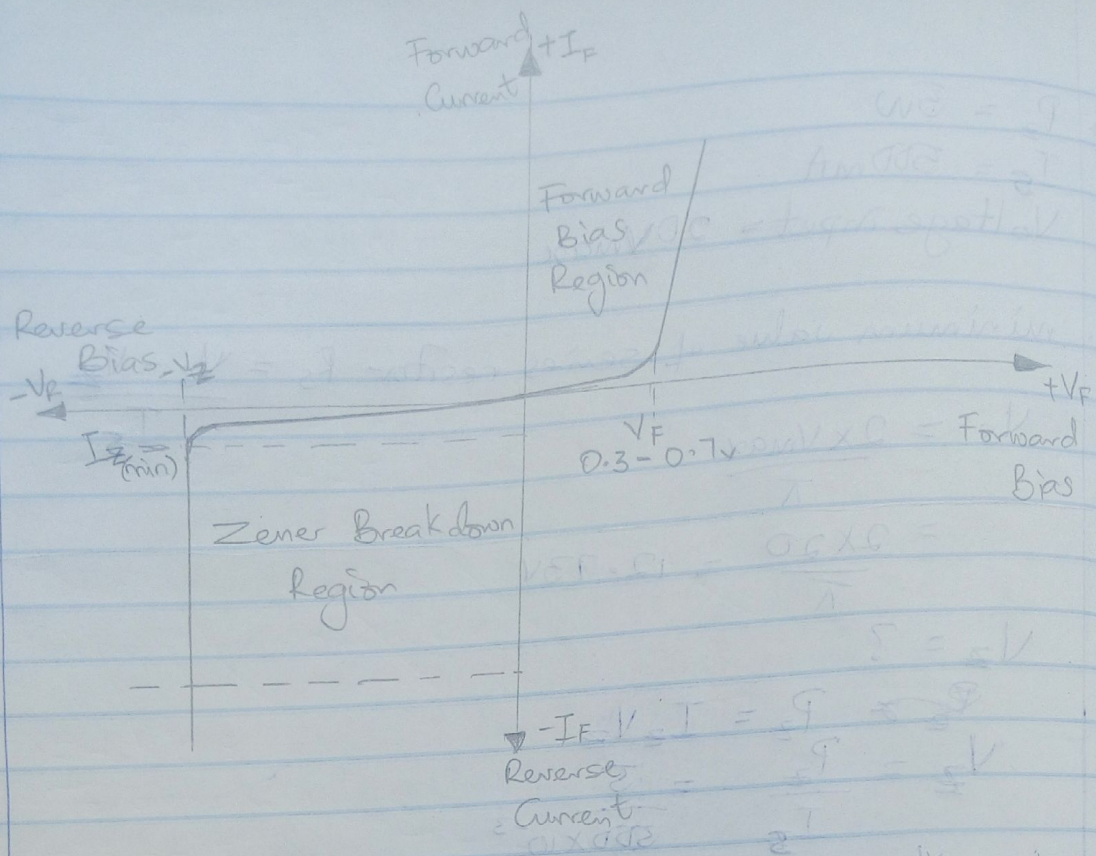 Forward
Current
+I_F
Forward
Bias
Region
Reverse
Bias
-V_Z
-V_F
+V_F
Forward
Bias
V_F
0.3 - 0.7v
I_Z
(min)
Zener Breakdown
Region
-I_F
Reverse
Current